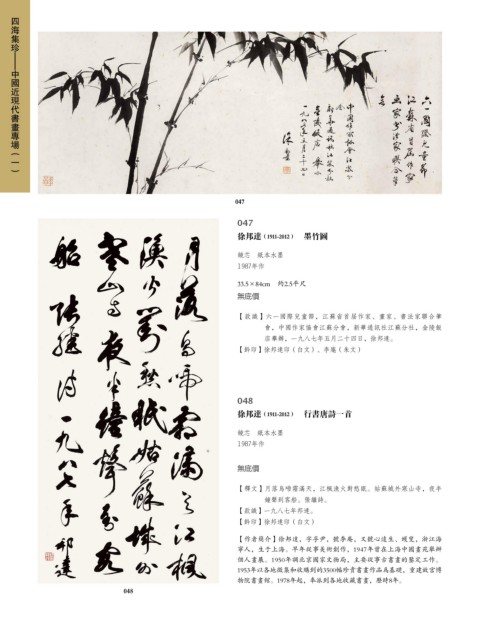 四海集珍——中國近現代書畫專場（一）
六一國際兒童節
江蘇省首屆作家
畫家書法家聯合筆
會
中國作家協會江蘇分
會
新華通訊社江蘇分社
金陵飯店舉辦
一九八七年五月二十四日
徐邦達
047
047
徐邦達（1911-2012） 墨竹圖
鏡芯 紙本水墨
1987年作
33.5×84cm 約2.5平尺
無底價
【款識】六一國際兒童節，江蘇省首屆作家、畫家、書法家聯合筆
會，中國作家協會江蘇分會，新華通訊社江蘇分社，金陵飯
店舉辦，一九八七年五月二十四日，徐邦達。
【鈐印】徐邦達印（白文）、李菴（朱文）
月落烏啼霜滿天江楓
漁火對愁眠姑蘇城外
寒山寺夜半鐘聲到客
船 張繼詩 一九八七年 邦達
048
048
徐邦達（1911-2012） 行書唐詩一首
鏡芯 紙本水墨
1987年作
無底價
【釋文】月落烏啼霜滿天，江楓漁火對愁眠。姑蘇城外寒山寺，夜半
鐘聲到客船。張繼詩。
【款識】一九八七年邦達。
【鈐印】徐邦達印（白文）
【作者簡介】徐邦達，字孚尹，號李菴，又號心遠生、蠖叟，浙江海
寧人，生于上海。早年從事美術創作，1947年曾在上海中國畫苑舉辦
個人畫展。1950年調北京國家文物局，主要從事古書畫的鑒定工作。
1953年以各地徵集和收購到的3500幅珍貴書畫作品爲基礎，重建故宮博
物院書畫館。1978年起，奉派到各地收藏書畫，歷時8年。